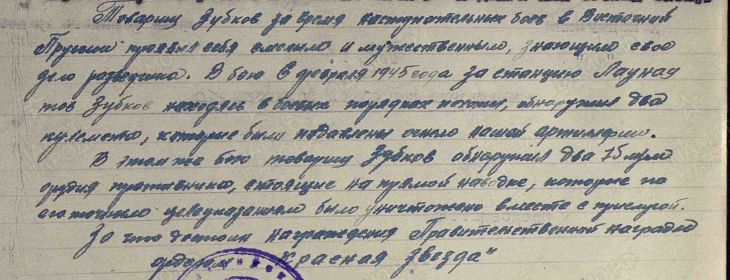 Товарищ Зубков за время наступательных боев в Восточной
Пруссии проявил себя смелым и мужественным, знающим свое
дело разведчика. В бою 6 февраля 1945 года за станцию Лаунад
тов Зубков находясь в боевых порядках пехоты, обнаружил два
пулемета, которые были подавлены огнем нашей артиллерии.
В этом же бою товарищ Зубков обнаружил два 75 м/м
орудия противника, стоящие на прямой наводке, которые по
его точным целеуказаниям было уничтожено вместе с прислугой.
За что достоин награждения Правительственной наградой
орденом "Красная Звезда"